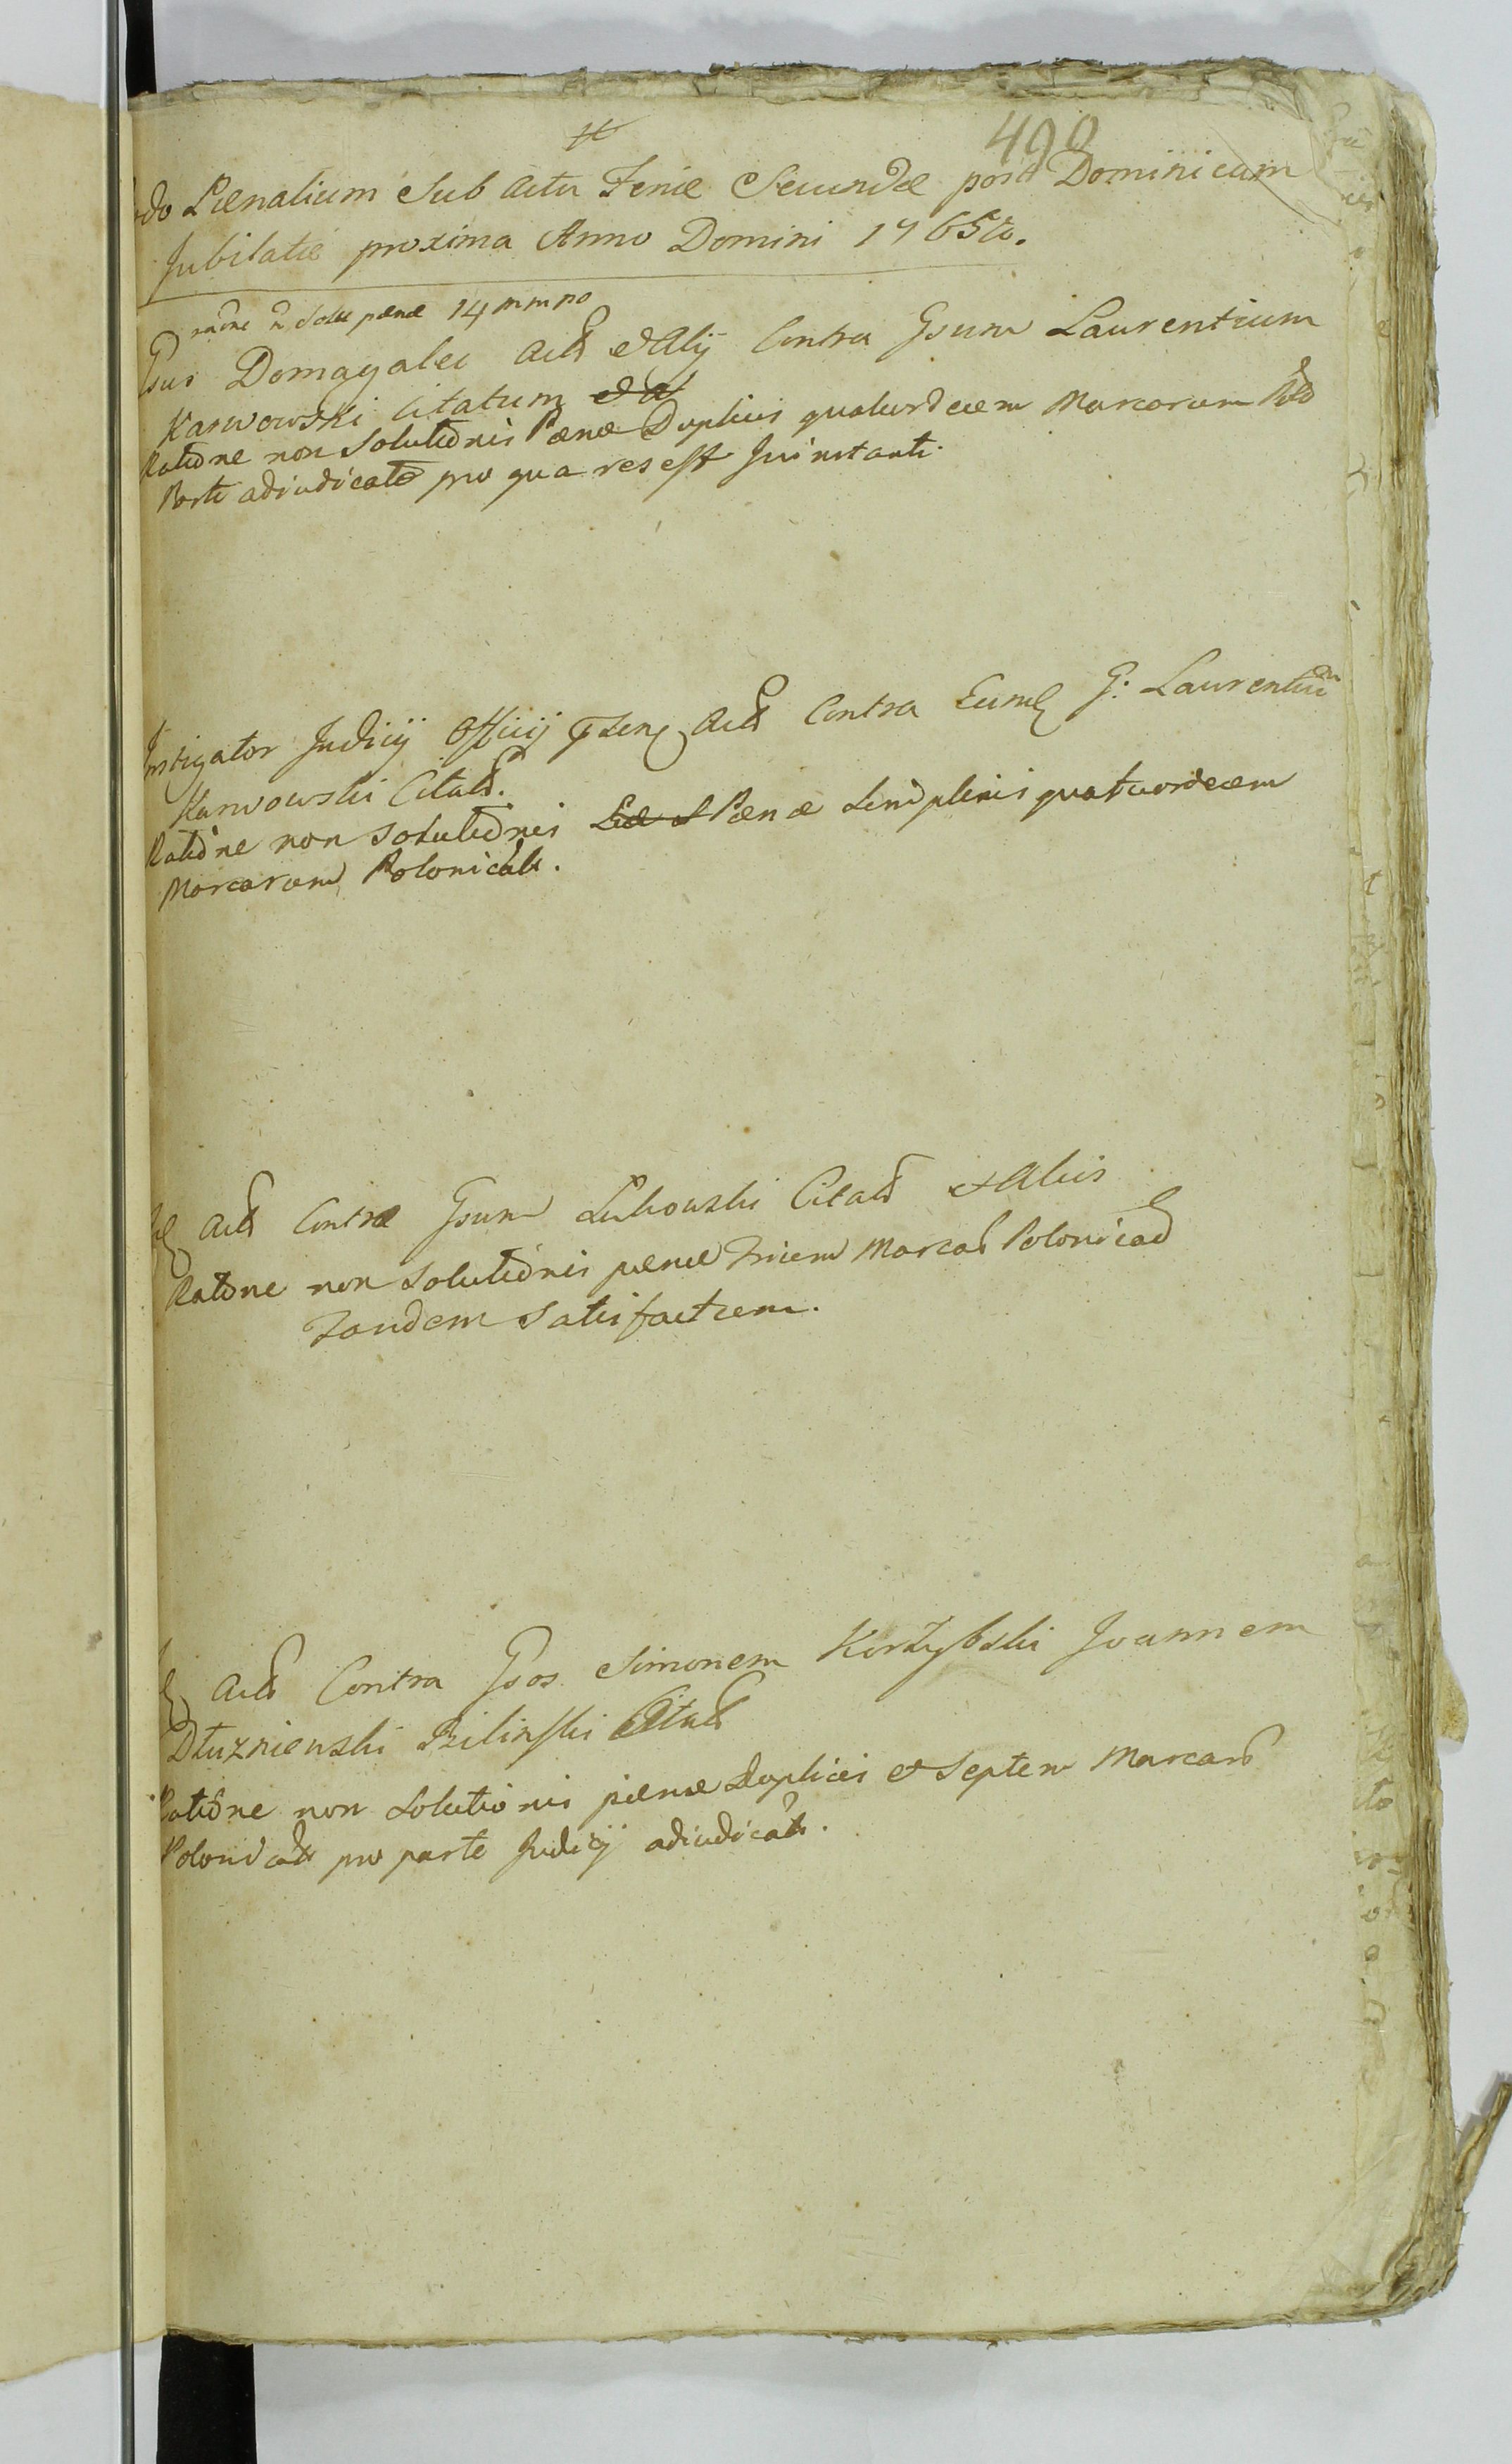 490
do Pænalium Sub Actu Feriæ Secundæ post Dominicam
Jubilate proxima Anno Domini 1765to.
raõne ñ Solu pænæ 14 mmno
Gsus Domagalec Acts et Alij Contra Gsum Laurentium
Karwowski Citatum et al
Ratiõne non Solutiõnis Pænæ Duplicis quatuordecem Marcarum Pols
Parte adiudicata pro qua res est Juinstanti.
Instigator Judicij Officij Acts Contra Eund G: Laurentiũ
Karwowski Citats.
Ratiõne non Solutiõnis Pænæ Simplicis quatuordecem
Marcarum Polonicals.
Acts Contra Gsum Lukowski Citats et Alios
Ratõne non Solutiõnis pænæ Trium Marcas Polonicas
Tandem Satisfactrem.
Acts Contra Gsos Simonem Korzybski Joannem
Dłuzniewski Bilinski Citats
Ratiõne non Solutionis pænæ duplicis et Septem Marcars
Polonicals pro parte Judicij adiudicats.